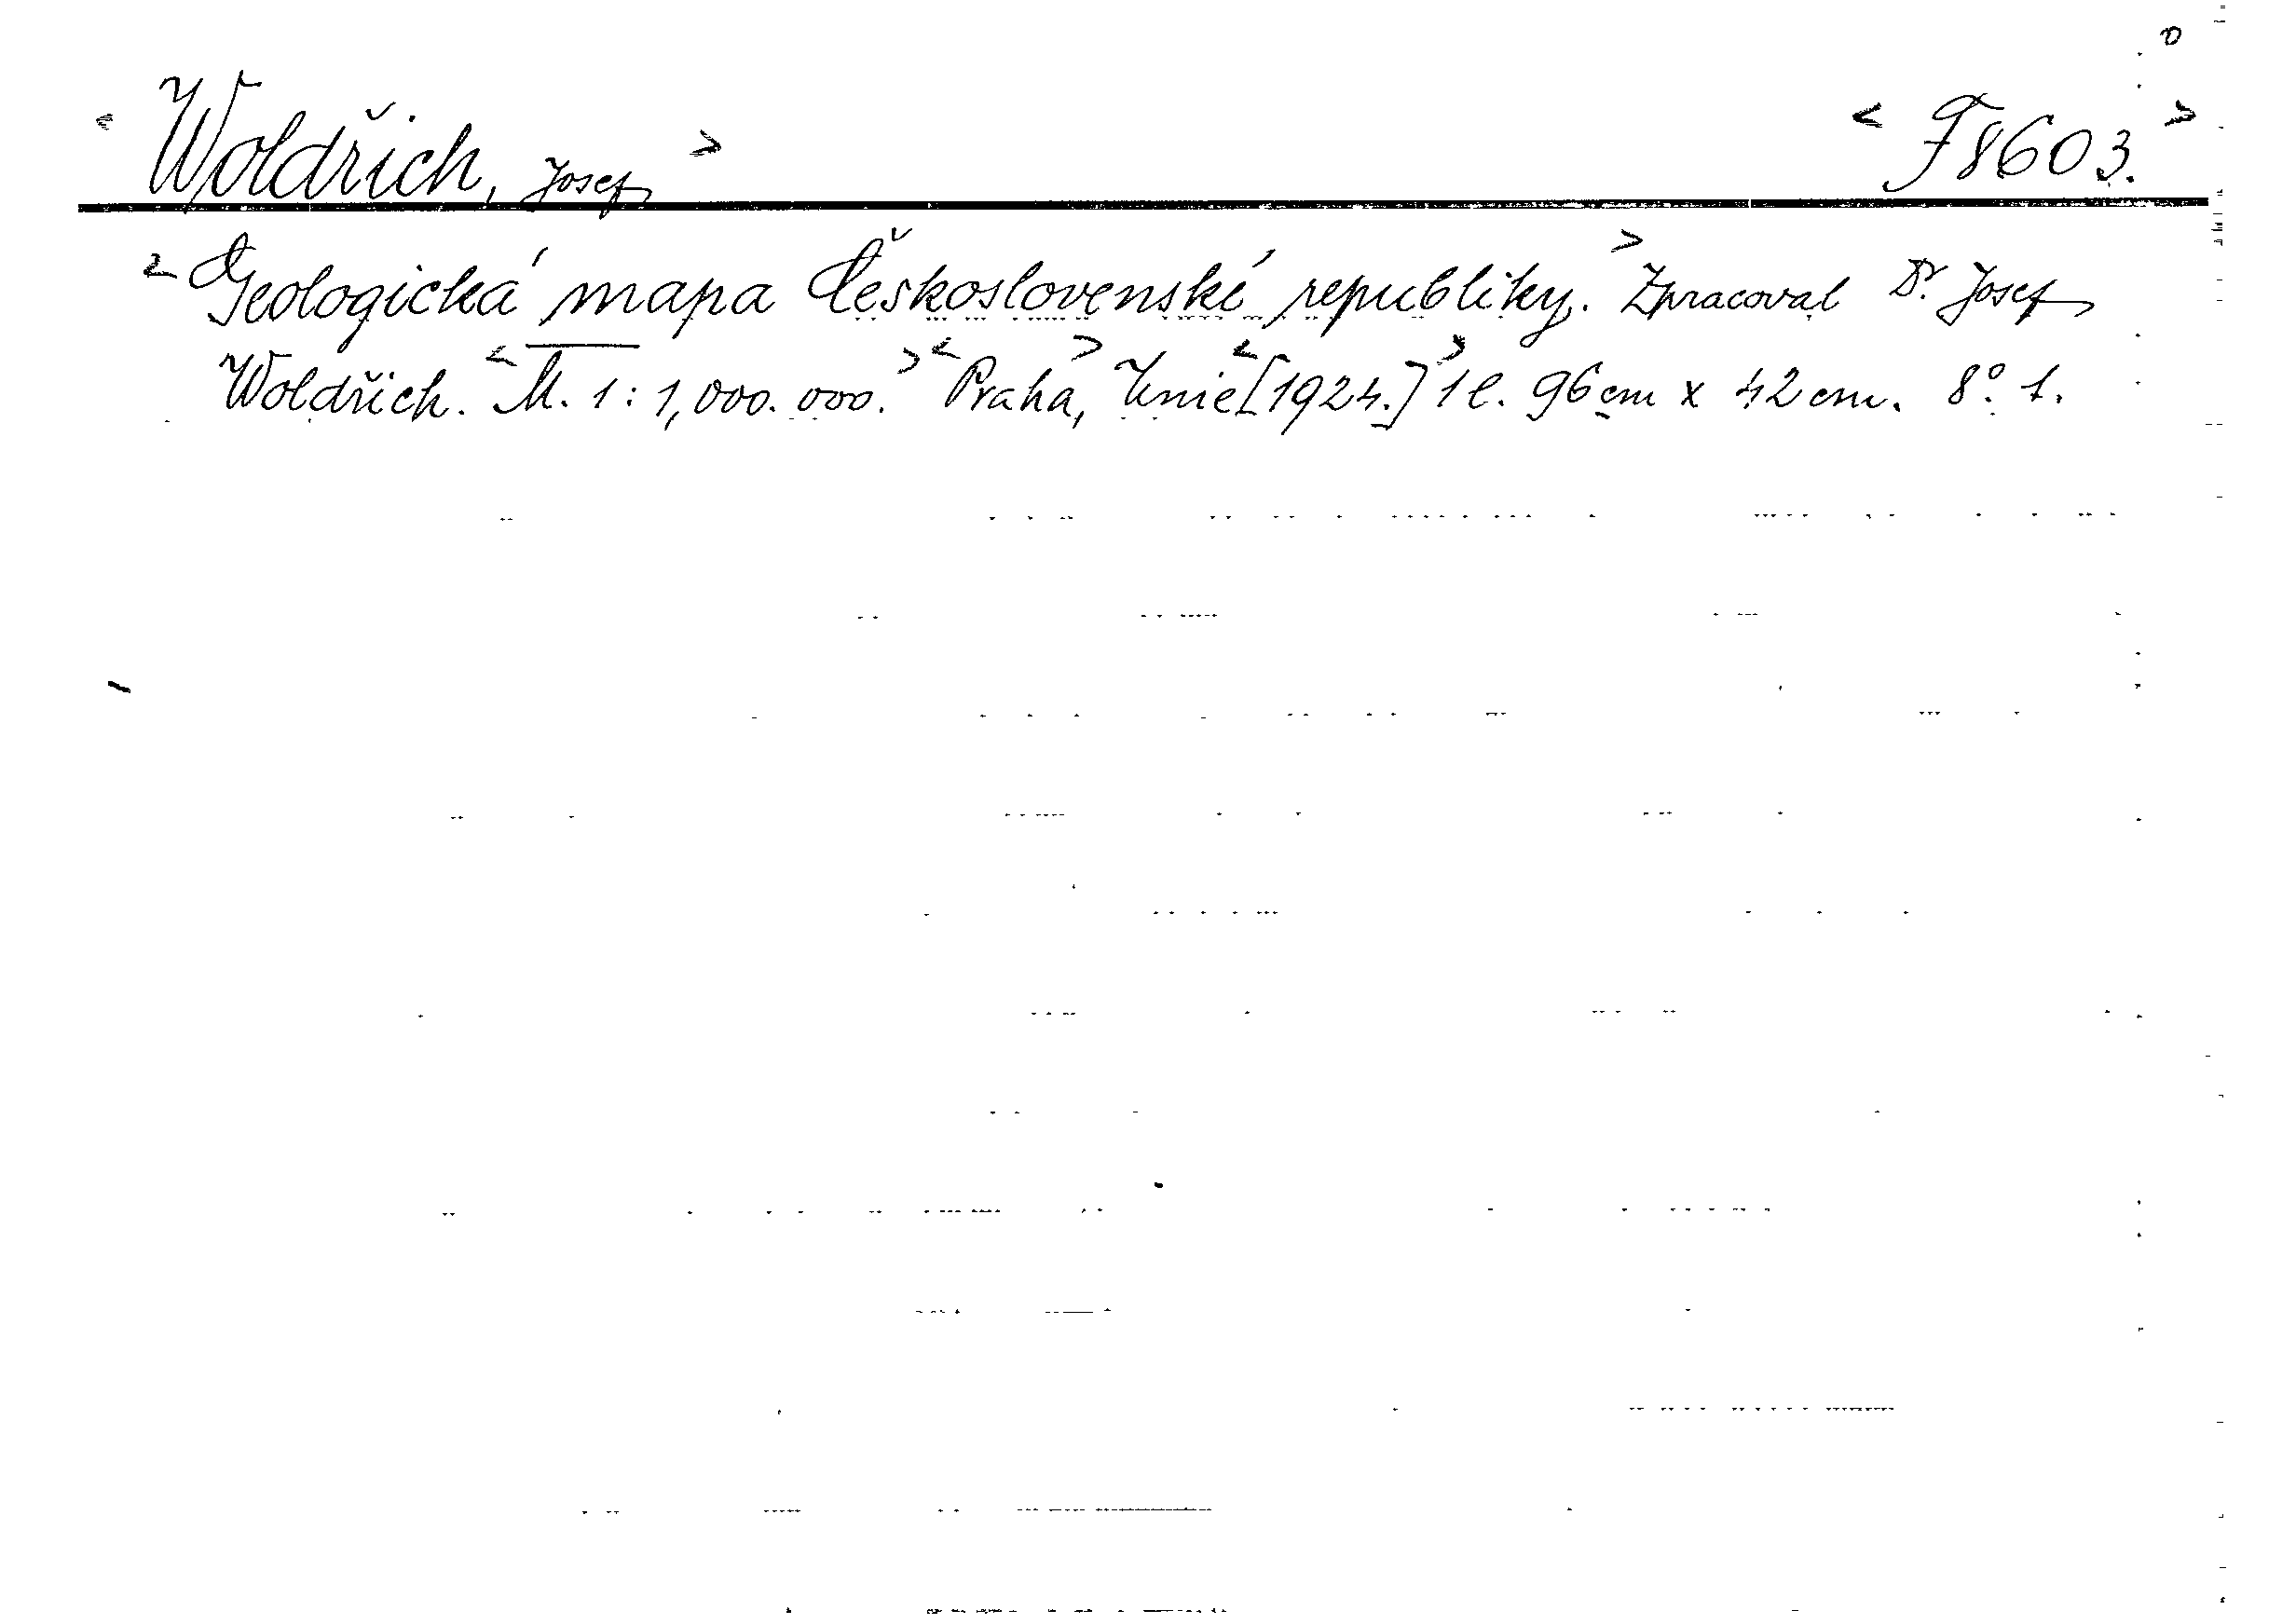 < Woldřich, Josef > < F8603. >
< Geologická mapa Československé republiky. > Zpracoval Dr. Josef
Woldřich. < M. 1 : 1,000.000. > < Praha, > Unie < [1924.] > 1 l. 96 cm x 42 cm. 8° 1.